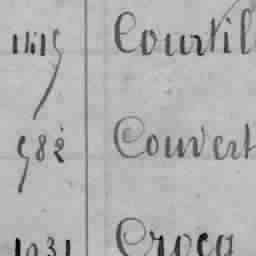 Courtil
982 Couvert
1031 Crocq